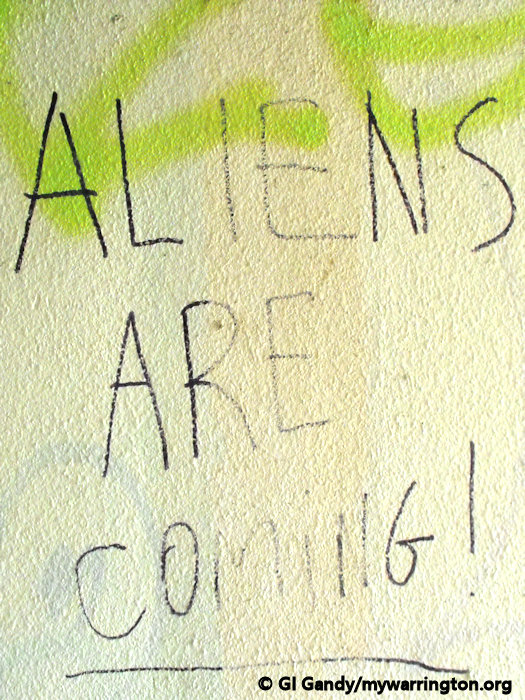 ALIENS
ARE
COMING!
© GI Gandy/mywarrington.org